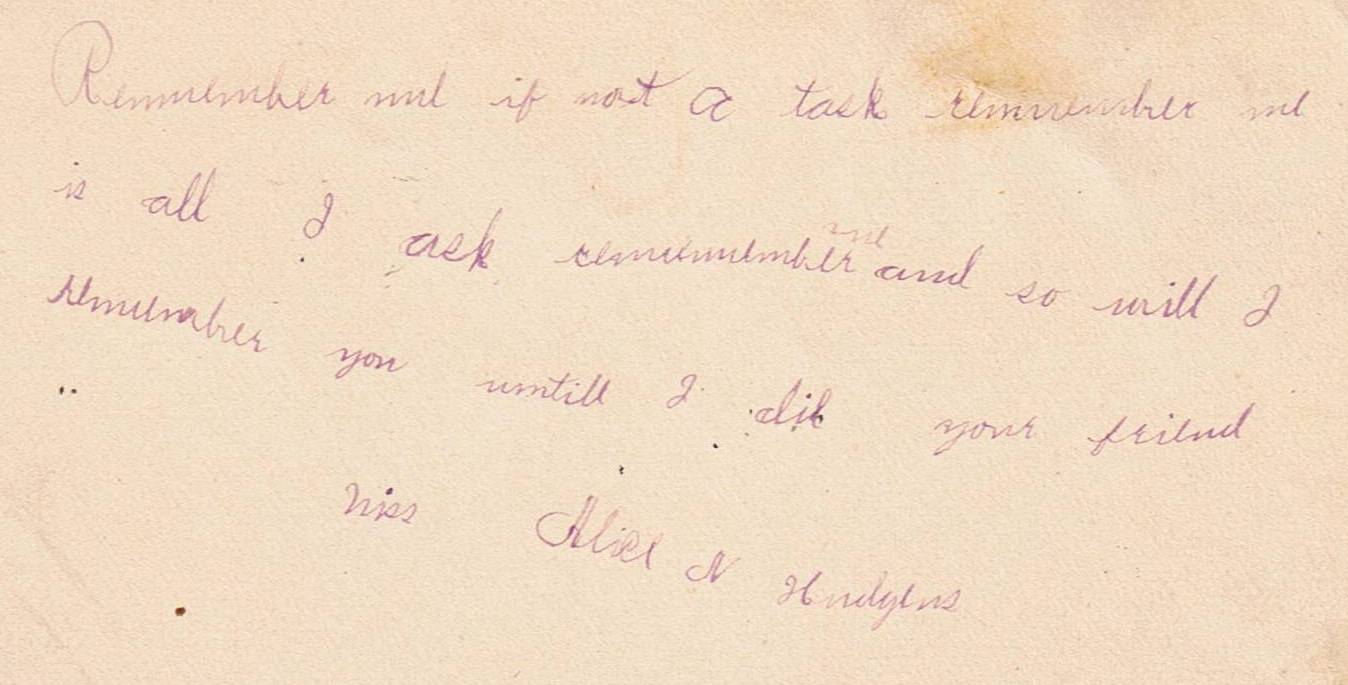 Remember me if not a task remember me
is all I ask rememember me and so will I
remember you untill I die your friend
Miss Alice N Hudgens